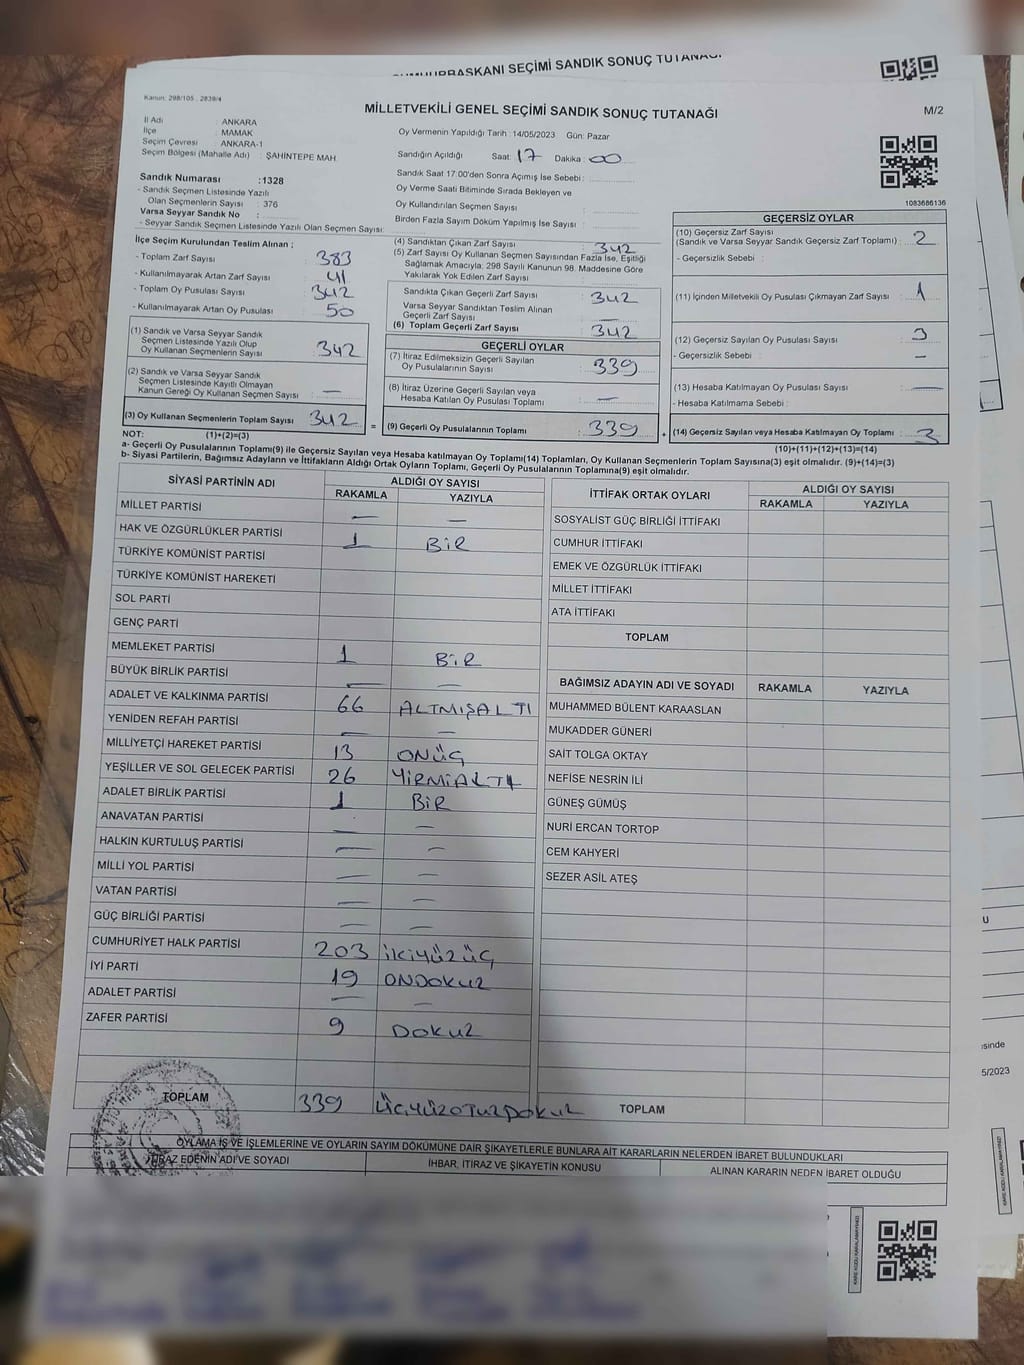 CUMHURBAŞKANI SEÇİMİ SANDIK SONUÇ TUTANAĞI
Kanun: 298/105 , 2839/4
MİLLETVEKİLİ GENEL SEÇİMİ SANDIK SONUÇ TUTANAĞI
M/2
İl Adı : ANKARA
İlçe : MAMAK
Seçim Çevresi : ANKARA-1
Seçim Bölgesi (Mahalle Adı) : ŞAHİNTEPE MAH.
Oy Vermenin Yapıldığı Tarih :14/05/2023 Gün: Pazar
Sandığın Açıldığı Saat: 17 Dakika: 00
Sandık Saat 17:00'den Sonra Açımış İse Sebebi :
Oy Verme Saati Bitiminde Sırada Bekleyen ve
Oy Kullandırılan Seçmen Sayısı :
Birden Fazla Sayım Döküm Yapılmış İse Sayısı :
1083686136
Sandık Numarası :1328
- Sandık Seçmen Listesinde Yazılı
Olan Seçmenlerin Sayısı : 376
Varsa Seyyar Sandık No :
- Seyyar Sandık Seçmen Listesinde Yazılı Olan Seçmen Sayısı:
İlçe Seçim Kurulundan Teslim Alınan ;
- Toplam Zarf Sayısı : 383
- Kullanılmayarak Artan Zarf Sayısı : 41
- Toplam Oy Pusulası Sayısı : 342
- Kullanılmayarak Artan Oy Pusulası : 50
(1) Sandık ve Varsa Seyyar Sandık
Seçmen Listesinde Yazılı Olup
Oy Kullanan Seçmenlerin Sayısı : 342
(2) Sandık ve Varsa Seyyar Sandık
Seçmen Listesinde Kayıtlı Olmayan
Kanun Gereği Oy Kullanan Seçmen Sayısı : —
(3) Oy Kullanan Seçmenlerin Toplam Sayısı : 342 =
(4) Sandıktan Çıkan Zarf Sayısı : 342
(5) Zarf Sayısı Oy Kullanan Seçmen Sayısından Fazla İse, Eşitliği
Sağlamak Amacıyla; 298 Sayılı Kanunun 98. Maddesine Göre
Yakılarak Yok Edilen Zarf Sayısı :
Sandıkta Çıkan Geçerli Zarf Sayısı : 342
Varsa Seyyar Sandıktan Teslim Alınan
Geçerli Zarf Sayısı : —
(6) Toplam Geçerli Zarf Sayısı : 342
GEÇERLİ OYLAR
(7) İtiraz Edilmeksizin Geçerli Sayılan
Oy Pusulalarının Sayısı : 339
(8) İtiraz Üzerine Geçerli Sayılan veya
Hesaba Katılan Oy Pusulası Toplamı : —
(9) Geçerli Oy Pusulalarının Toplamı : 339 +
GEÇERSİZ OYLAR
(10) Geçersiz Zarf Sayısı
(Sandık ve Varsa Seyyar Sandık Geçersiz Zarf Toplamı) : 2
- Geçersizlik Sebebi :
(11) İçinden Milletvekili Oy Pusulası Çıkmayan Zarf Sayısı : 1
(12) Geçersiz Sayılan Oy Pusulası Sayısı : 3
- Geçersizlik Sebebi : —
(13) Hesaba Katılmayan Oy Pusulası Sayısı : —
- Hesaba Katılmama Sebebi :
(14) Geçersiz Sayılan veya Hesaba Katılmayan Oy Toplamı : 3
NOT: (1)+(2)=(3)
(10)+(11)+(12)+(13)=(14)
a- Geçerli Oy Pusulalarının Toplamı(9) ile Geçersiz Sayılan veya Hesaba katılmayan Oy Toplamı(14) Toplamları, Oy Kullanan Seçmenlerin Toplam Sayısına(3) eşit olmalıdır. (9)+(14)=(3)
b- Siyasi Partilerin, Bağımsız Adayların ve İttifakların Aldığı Ortak Oyların Toplamı, Geçerli Oy Pusulalarının Toplamına(9) eşit olmalıdır.
SİYASİ PARTİNİN ADI ALDIĞI OY SAYISI
RAKAMLA YAZIYLA
MİLLET PARTİSİ — —
HAK VE ÖZGÜRLÜKLER PARTİSİ 1 BİR
TÜRKİYE KOMÜNİST PARTİSİ
TÜRKİYE KOMÜNİST HAREKETİ
SOL PARTİ
GENÇ PARTİ
MEMLEKET PARTİSİ 1 BİR
BÜYÜK BİRLİK PARTİSİ — —
ADALET VE KALKINMA PARTİSİ 66 ALTMIŞALTI
YENİDEN REFAH PARTİSİ — —
MİLLİYETÇİ HAREKET PARTİSİ 13 ONÜÇ
YEŞİLLER VE SOL GELECEK PARTİSİ 26 YİRMİALTI
ADALET BİRLİK PARTİSİ 1 BİR
ANAVATAN PARTİSİ — —
HALKIN KURTULUŞ PARTİSİ — —
MİLLİ YOL PARTİSİ — —
VATAN PARTİSİ — —
GÜÇ BİRLİĞİ PARTİSİ — —
CUMHURİYET HALK PARTİSİ 203 İKİYÜZÜÇ
İYİ PARTİ 19 ONDOKUZ
ADALET PARTİSİ — —
ZAFER PARTİSİ 9 DOKUZ
TOPLAM 339 ÜÇYÜZOTUZDOKUZ
İTTİFAK ORTAK OYLARI ALDIĞI OY SAYISI
RAKAMLA YAZIYLA
SOSYALİST GÜÇ BİRLİĞİ İTTİFAKI
CUMHUR İTTİFAKI
EMEK VE ÖZGÜRLÜK İTTİFAKI
MİLLET İTTİFAKI
ATA İTTİFAKI
TOPLAM
BAĞIMSIZ ADAYIN ADI VE SOYADI RAKAMLA YAZIYLA
MUHAMMED BÜLENT KARAASLAN
MUKADDER GÜNERİ
SAİT TOLGA OKTAY
NEFİSE NESRİN İLİ
GÜNEŞ GÜMÜŞ
NURİ ERCAN TORTOP
CEM KAHYERİ
SEZER ASİL ATEŞ
TOPLAM
OYLAMA İŞ VE İŞLEMLERİNE VE OYLARIN SAYIM DÖKÜMÜNE DAİR ŞİKAYETLERLE BUNLARA AİT KARARLARIN NELERDEN İBARET BULUNDUKLARI
İTİRAZ EDENİN ADI VE SOYADI İHBAR, İTİRAZ VE ŞİKAYETİN KONUSU ALINAN KARARIN NEDEN İBARET OLDUĞU
KARE KODU KARALAMAYINIZ!
U
sinde
5/2023
KARE KODU KARALAMAYINIZ!